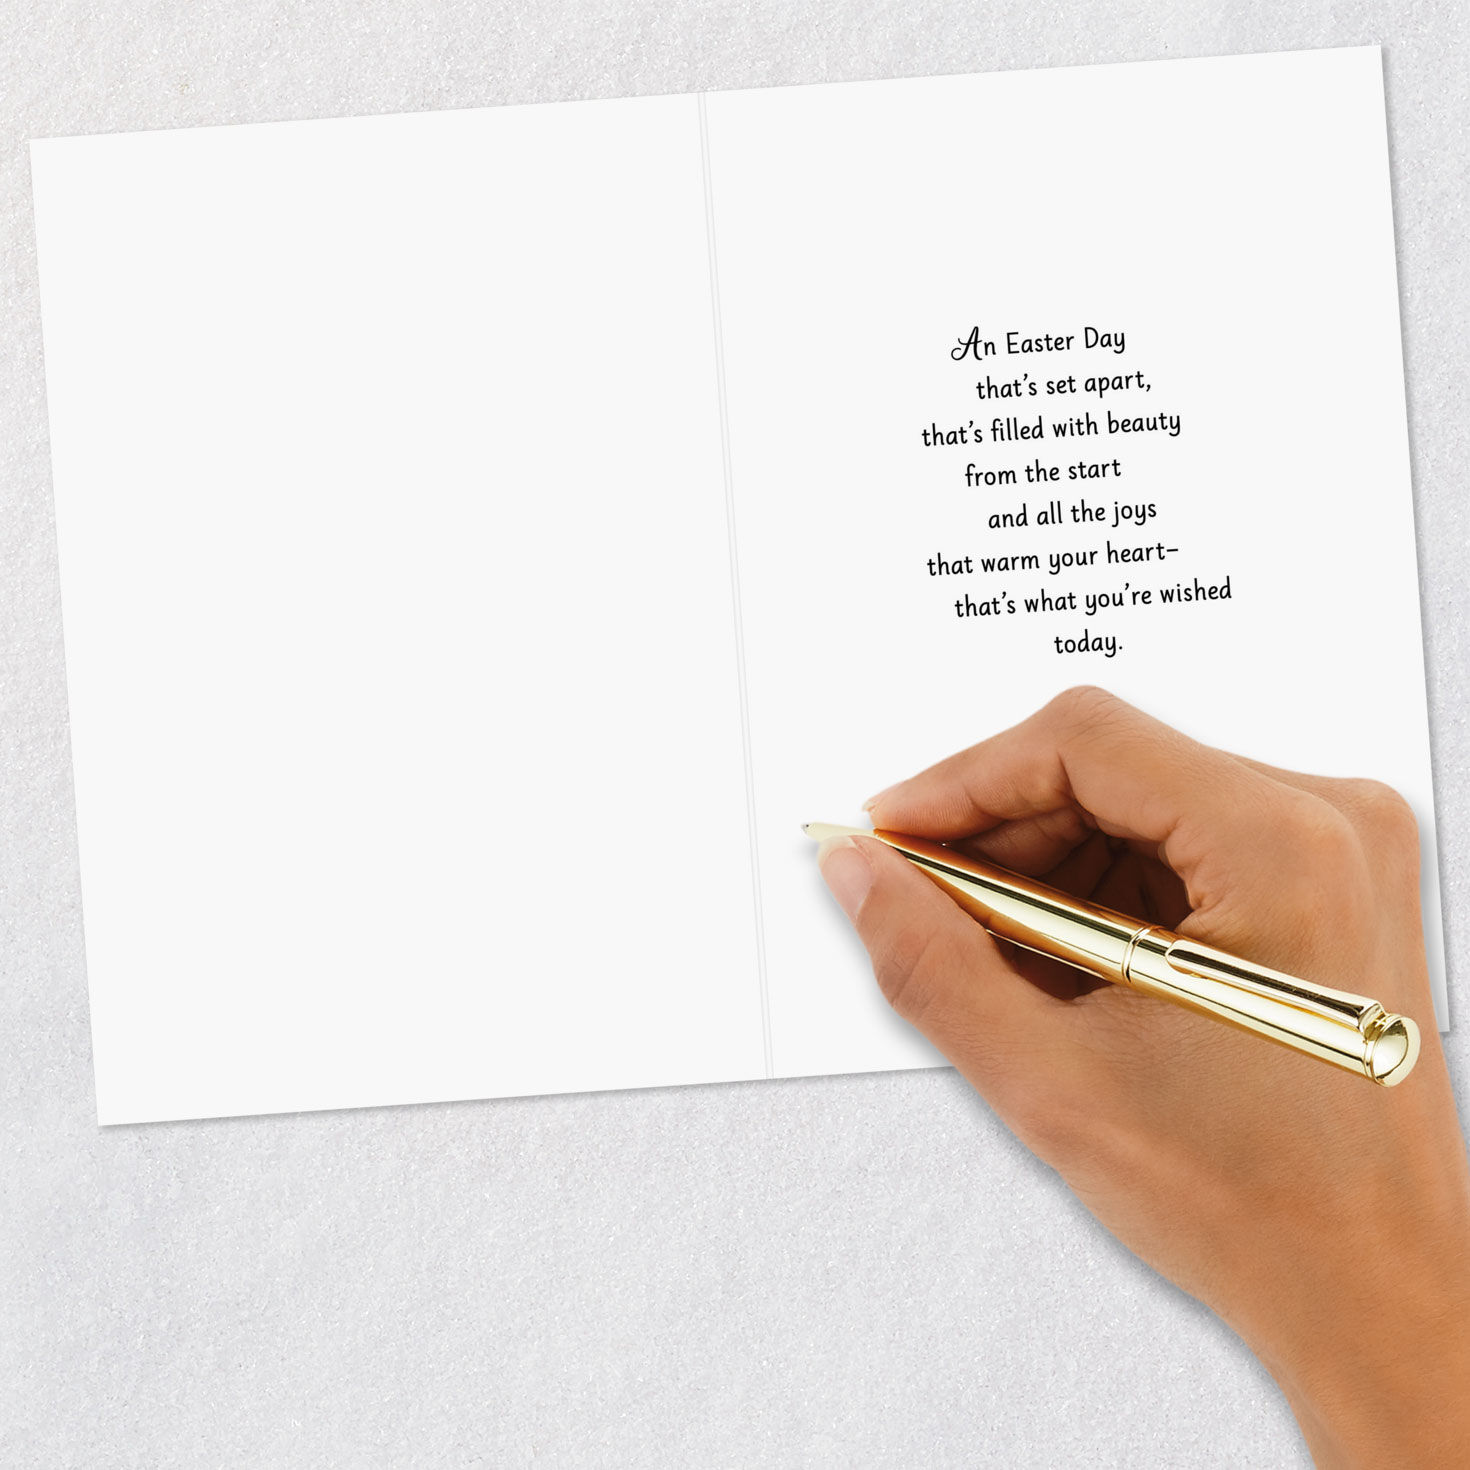 An Easter Day
that’s set apart,
that’s filled with beauty
from the start
and all the joys
that warm your heart–
that’s what you’re wished
today.